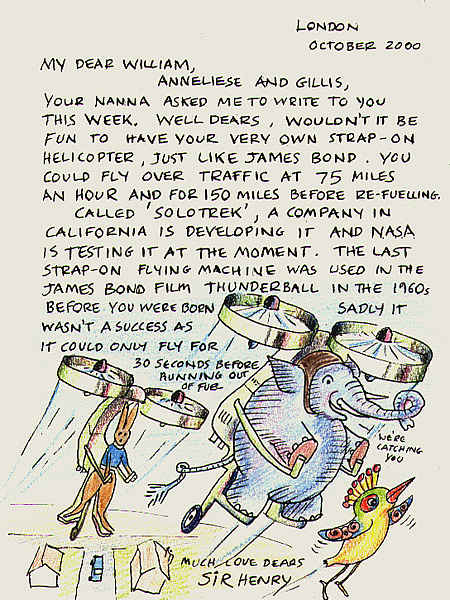 LONDON
OCTOBER 2000
MY DEAR WILLIAM,
ANNELIESE AND GILLIS,
YOUR NANNA ASKED ME TO WRITE TO YOU
THIS WEEK. WELL DEARS, WOULDN'T IT BE
FUN TO HAVE YOUR VERY OWN STRAP-ON
HELICOPTER, JUST LIKE JAMES BOND. YOU
COULD FLY OVER TRAFFIC AT 75 MILES
AN HOUR AND FOR 150 MILES BEFORE RE-FUELLING.
CALLED 'SOLOTREK', A COMPANY IN
CALIFORNIA IS DEVELOPING IT AND NASA
IS TESTING IT AT THE MOMENT. THE LAST
STRAP-ON FLYING MACHINE WAS USED IN THE
JAMES BOND FILM THUNDERBALL IN THE 1960s
BEFORE YOU WERE BORN SADLY IT
WASN'T A SUCCESS AS
IT COULD ONLY FLY FOR
30 SECONDS BEFORE
RUNNING OUT
OF FUEL
WE'RE
CATCHING
YOU
MUCH LOVE DEARS
SIR HENRY